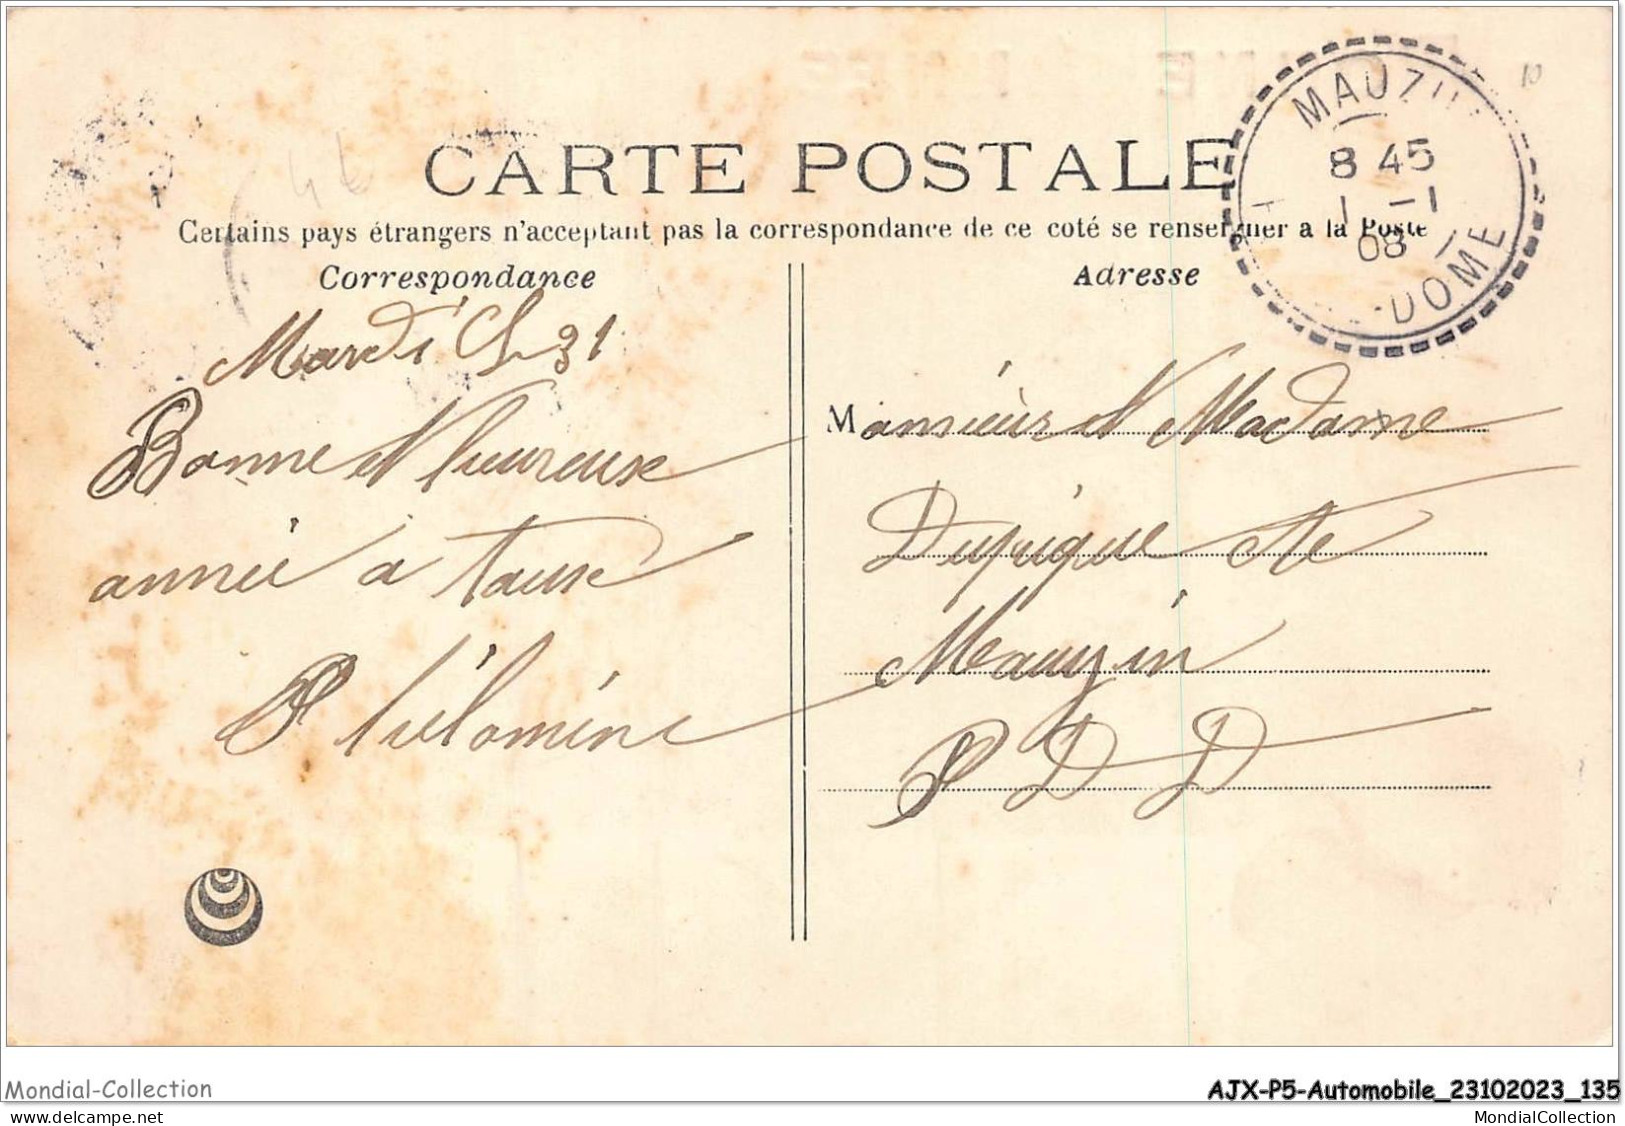 CARTE POSTALE
Certains pays étrangers n'acceptant pas la correspondance de ce coté se renseigner a la Poste
Correspondance
Adresse
MAUZU
8 45
1 -1
08
-DOME
Mardi 31
Bonne et heureuse
année a tous
Philomène
Monsieur et Madame
Mauzun
P D D
Mondial-Collection
AJX-P5-Automobile_23102023_135
MondialCollection